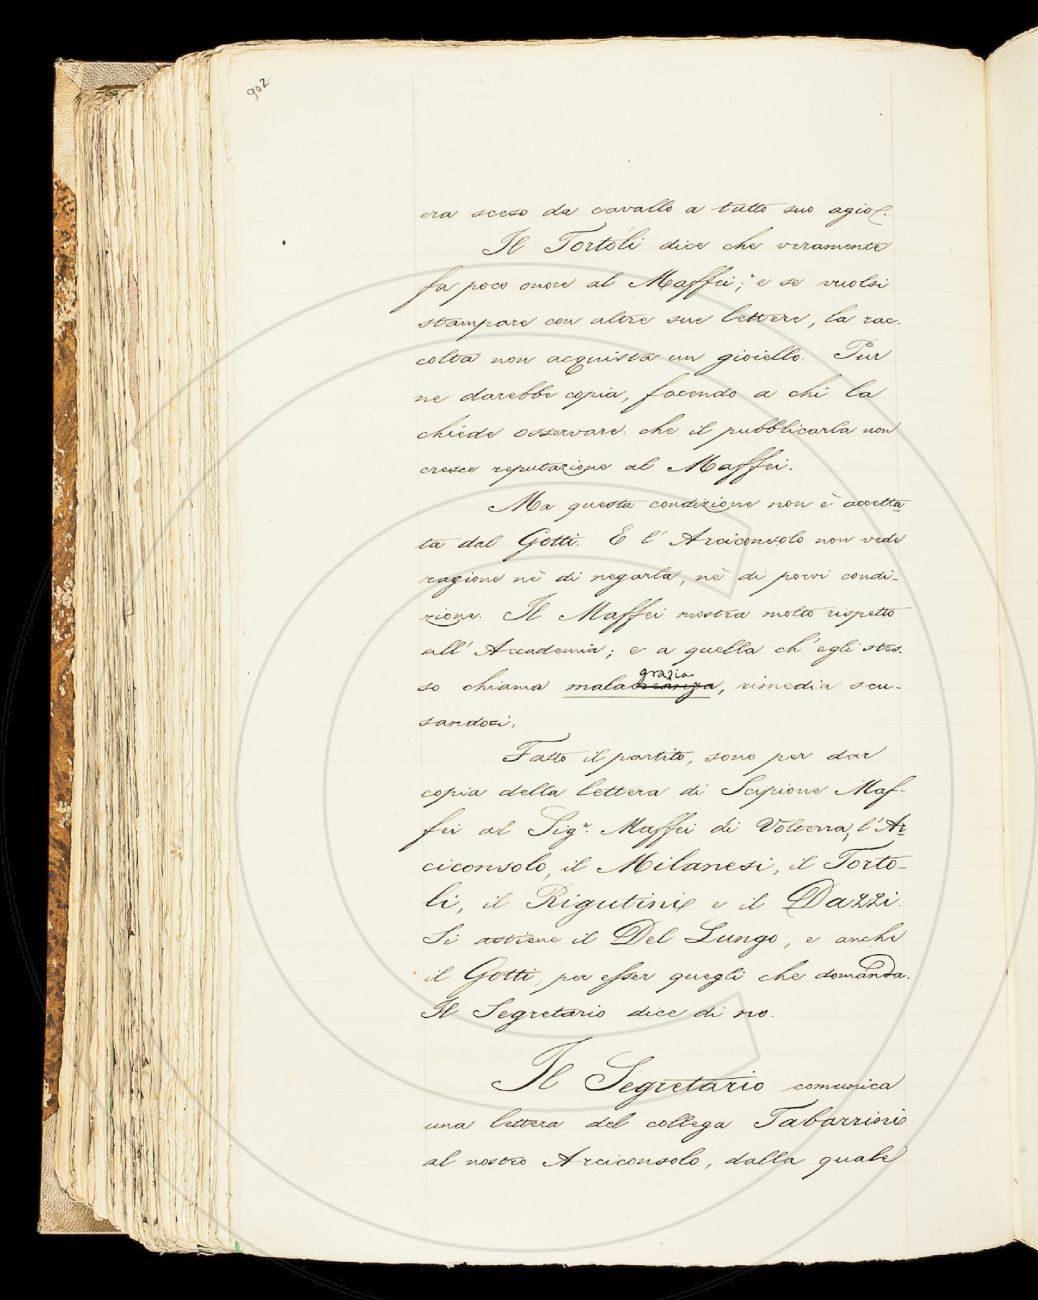 902
era sceso da cavallo a tutto suo agio.
Il Tortoli dice che veramente
fa poco onore al Maffei; e se vuolsi
stampare con altre sue lettere, la rac-
colta non acquista un gioiello. Pur
ne darebbe copia, facendo a chi la
chiede osservare che il pubblicarla non
cresce reputazione al Maffei.
Ma questa condizione non è accetta
ta dal Gotti. E l' Arciconsolo non vede
ragione nè di negarla, nè di porvi condi-
zione. Il Maffei mostra molto rispetto
all' Accademia; e a quella ch' egli stes-
grazia
so chiama malacreanza, rimedia scu-
sandosi.
Fatto il partito, sono per dar
copia della lettera di Scipione Maf-
fei al Sigr. Maffei di Volterra, l' Ar
ciconsolo, il Milanesi, il Torto-
li, il Rigutini e il Dazzi.
Si astiene il Del Lungo, e anche
il Gotti, per esser quegli che domanda.
Il Segretario dice di no.
Il Segretario comunica
una lettera del collega Tabarrini
al nostro Arciconsolo, dalla quale